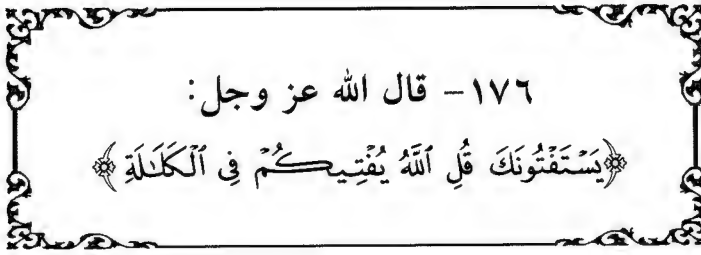 ١٧٦- قال الله عز وجل:
﴿يَسْتَفْتُونَكَ قُلِ ٱللَّهُ يُفْتِيكُمْ فِى ٱلْكَلَـٰلَةِ﴾